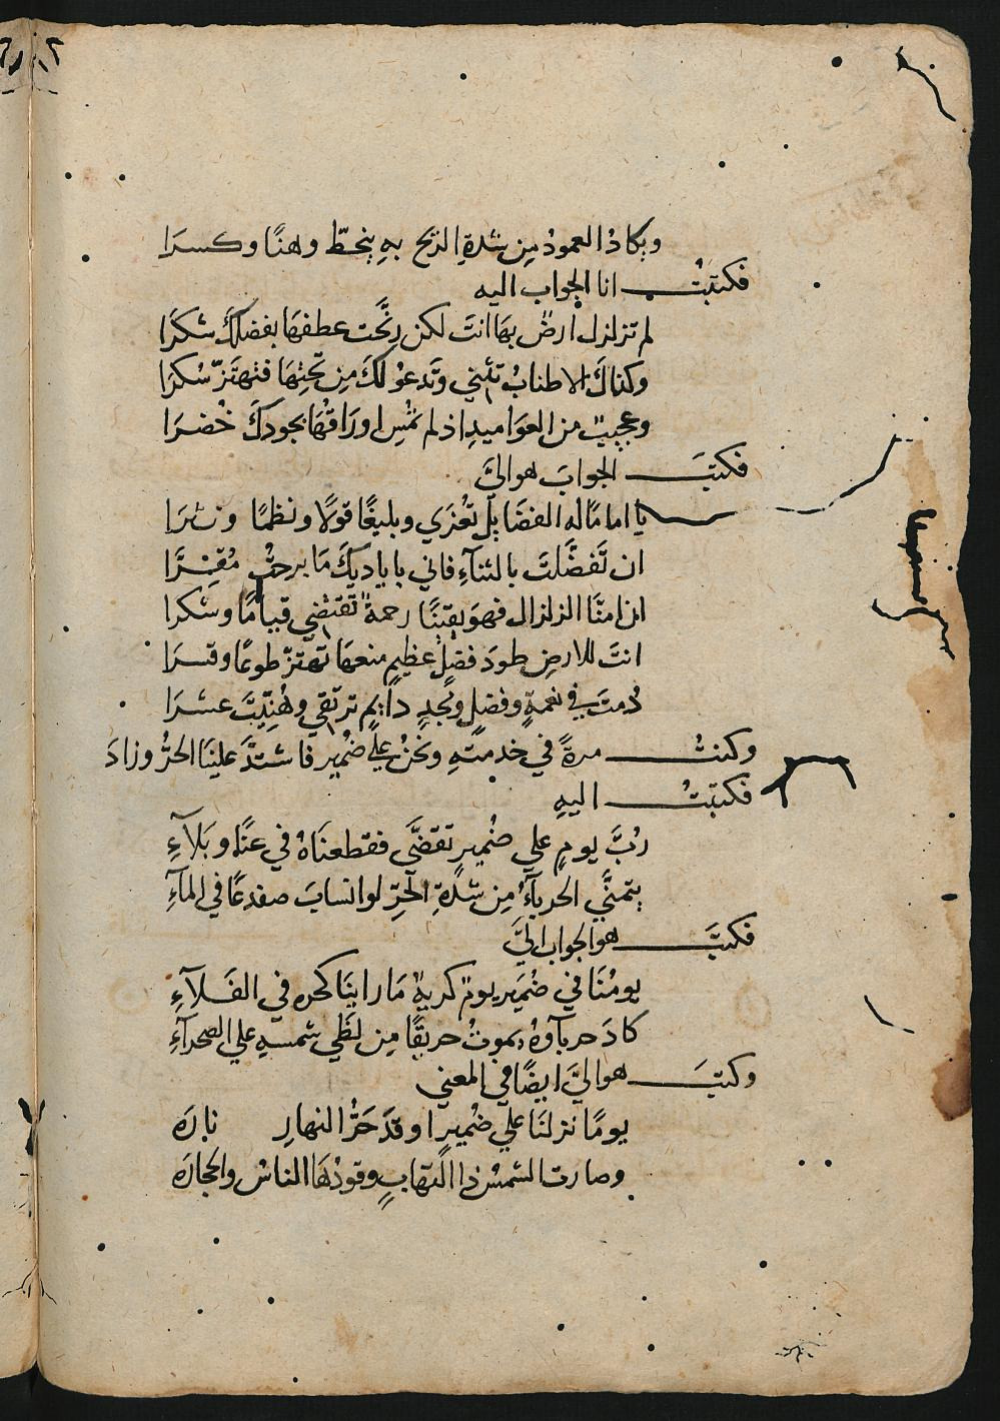 ويكاد العمود من شدة الريح به ينحط وهنًا وكسرا
فكتبت انا الجواب اليه
لم تزلزل ارض بها انت لكن رنحت عطفها بفضلك شكرا
وكذاك الاطناب تثني وتدعو لك من تحتها فتهتز سكرا
وعجيب من العواميد اذ لم تمس اوراقها بجودك خضرا
فكتب الجواب هو الي
يا اماما له الفضايل تعزي وبليغًا قولًا ونظمًا ونثرا
ان تفضلت بالثنآء فاني باياديك ما برحت مقرا
ان امنا الزلزال فهو يقينًا رحمة تقتضي قيامًا وشكرا
انت للارض طود فضل عظيم منعها تهتز طوعًا وقسرا
دمت في نعمة وفضل ومجد دايم ترتقي وهنيت عشرا
وكنت مرة في خدمته ونحن علي ضمير فاشتد علينا الحر وزاد
فكتبت اليه
رب يوم علي ضمير تقضي فقطعناه في عنا وبلآء
يتمني الحربآء من شدة الحر لو انساب ضفدعًا في المآء
فكتب هو الجواب الي
يومنا في ضمير يوم كريه ما راينا كحره في الفلآء
كاد حربآوه يموت حريقًا من لظي شمسه علي الصحرآء
وكتب هو الي ايضًا في المعني
يومًا نزلنا علي ضمير اوقد حر النهار ناره
وصارت الشمس ذا التهاب وقودها الناس والحجاره